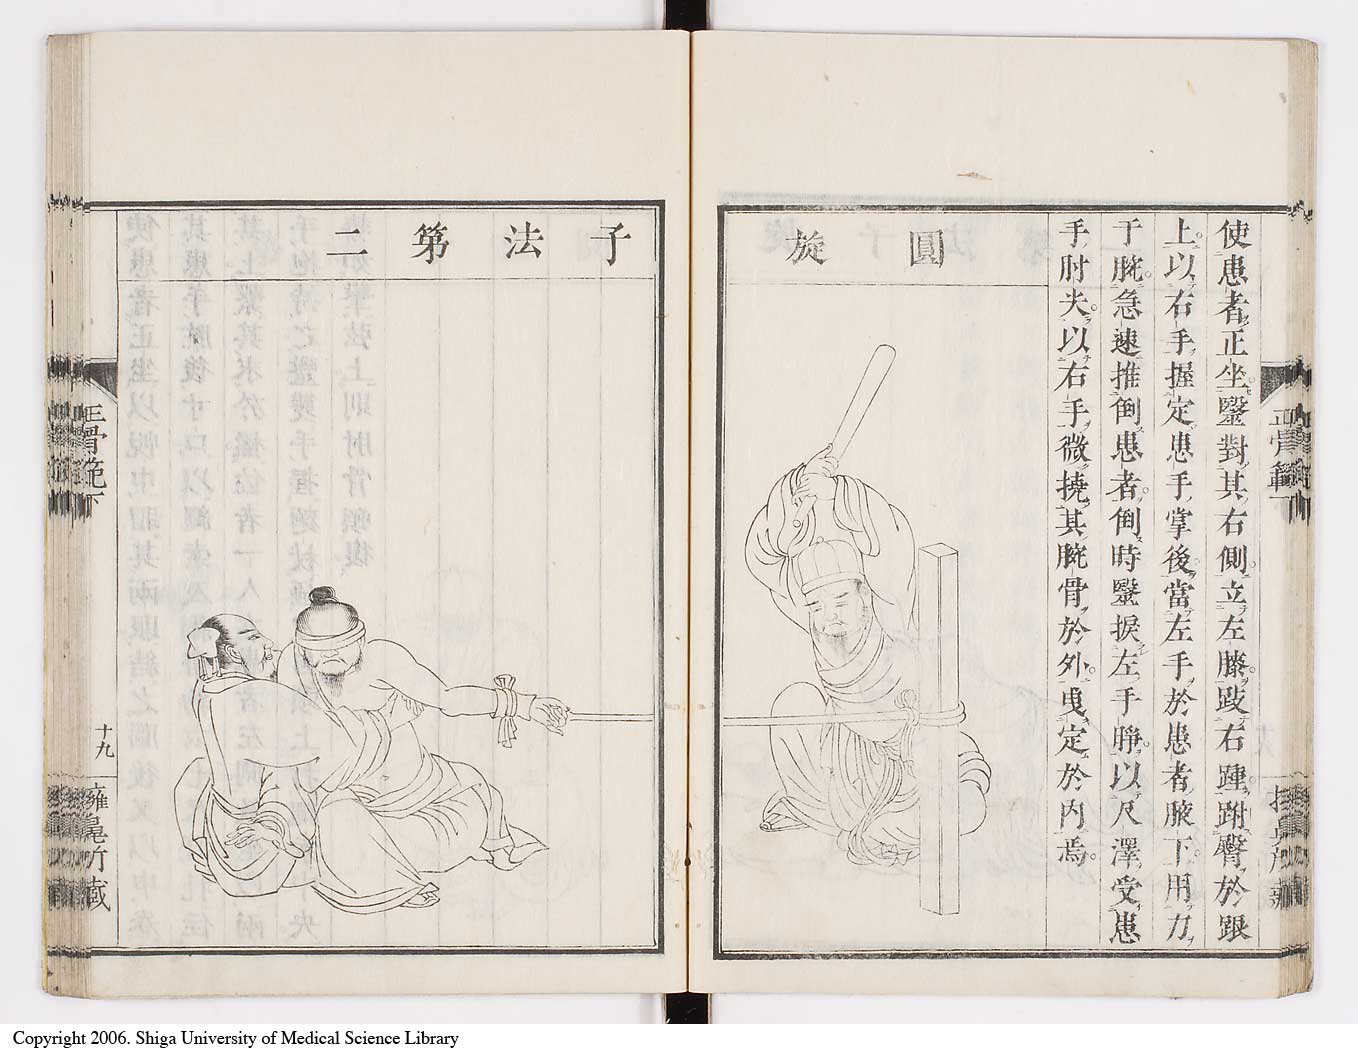 使患者正坐毉對其右側立左膝跂右踵跗臀於跟
上以右手握定患手掌後當左手於患者腋下用力
于腕急速推倒患者倒時毉捩左手睜以尺澤受患
手肘尖以右手微撓其腕骨於外曳定於內焉
圓旋
子法第二
正骨範下
十九
Copyright 2006. Shiga University of Medical Science Library